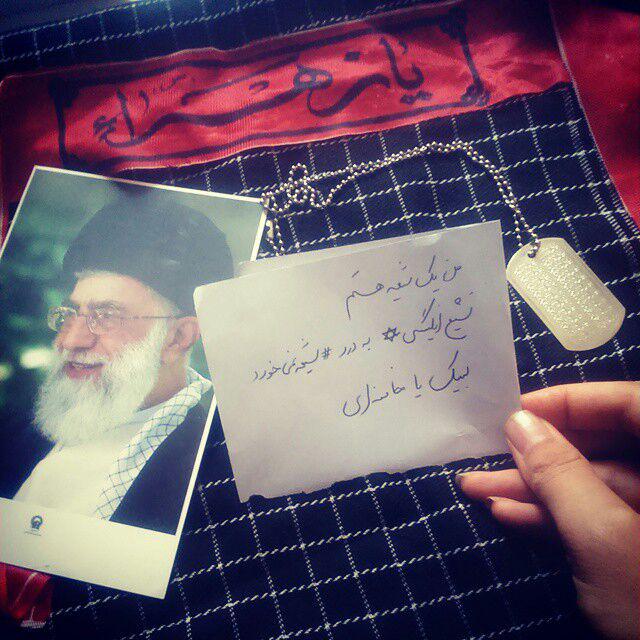 یا زهرا
من یک شیعه هستم
تشیع انگلیسی ✡ به درد # شیعه نمی خورد
لبیک یا خامنه ای